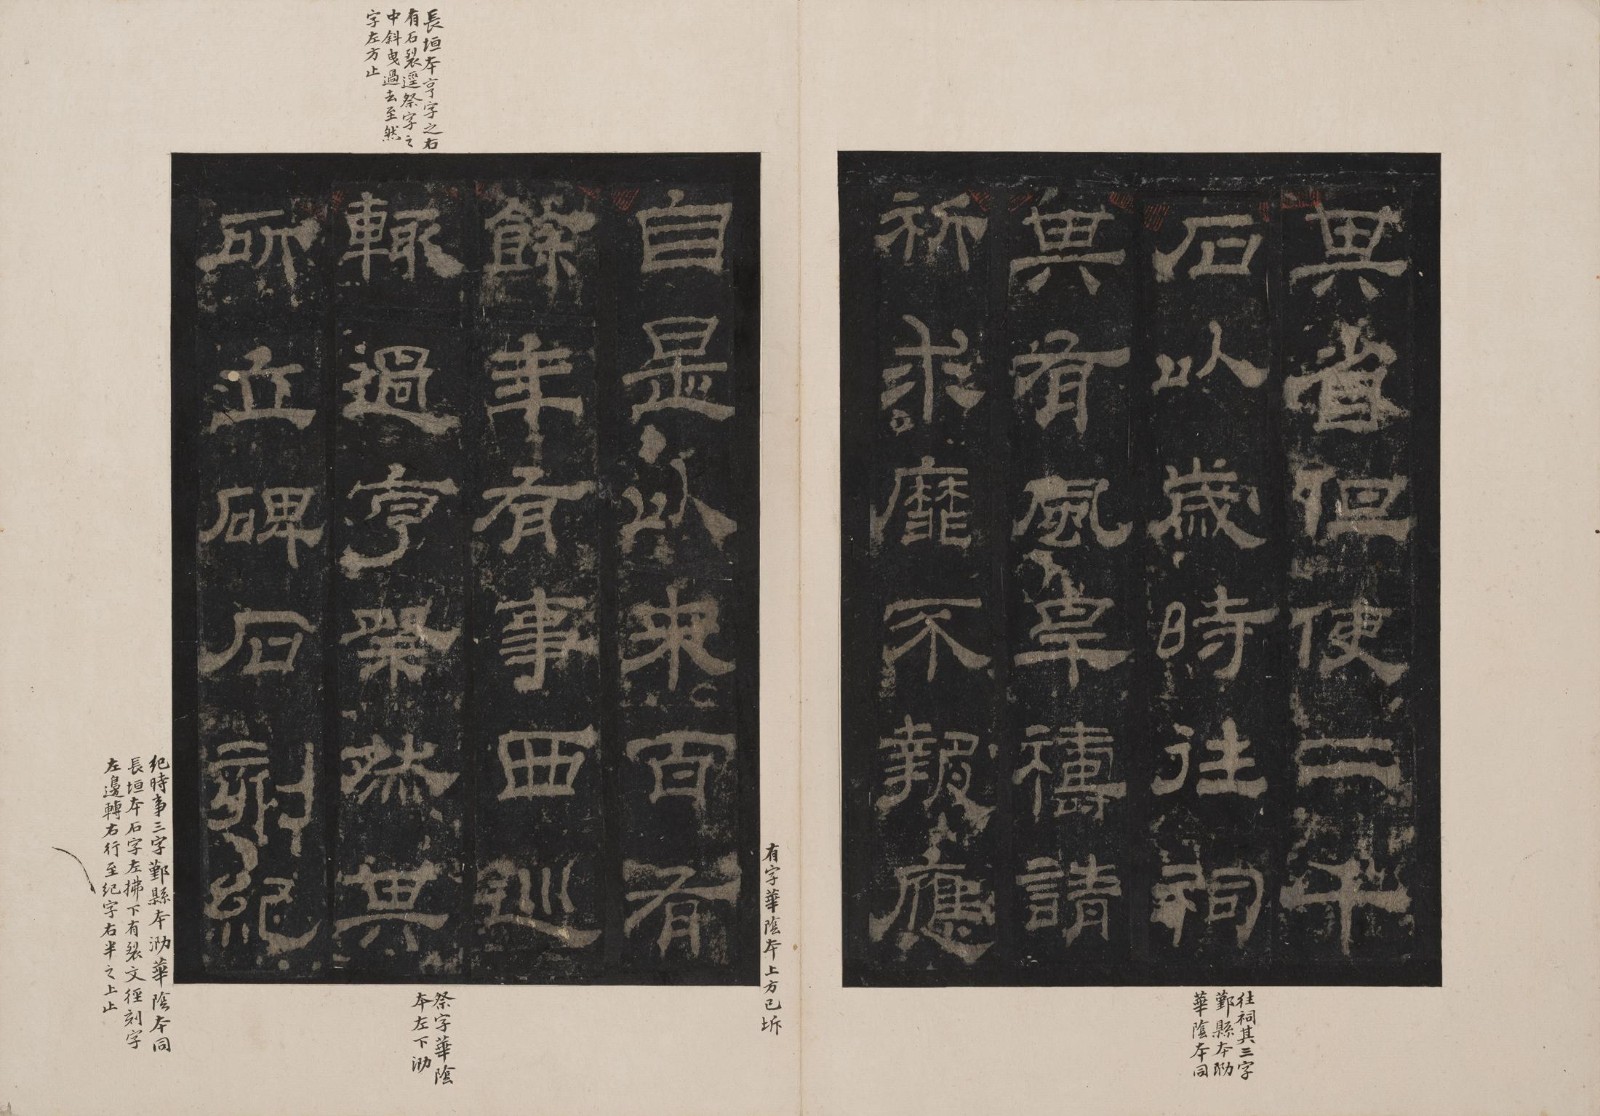 其省但使二千
石以歲時往祠
其有風旱禱請
祈求靡不報應
自是以來百有
餘年有事西巡
輒過亨祭然其
所立碑石刻紀
往祠其三字
鄞縣本泐
華陰本同
有字華陰本上方已坼
長垣本亨字之右
有石裂逕祭字之
中斜曳過去至然
字左方止
祭字華陰
本左下泐
紀時事三字鄞縣本泐華陰本同
長垣本石字左拂下有裂文徑刻字
左邊轉右行至紀字右半之上止